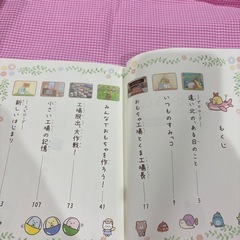 もくじ
プロローグ
遠い北の、ある日のこと
3
いつものすみっコ
7
おもちゃ工場とくま工場長
17
みんなでおもちゃを作ろう!
41
工場脱出、大作戦!
73
小さい工場の記憶
107
新しいはじまり